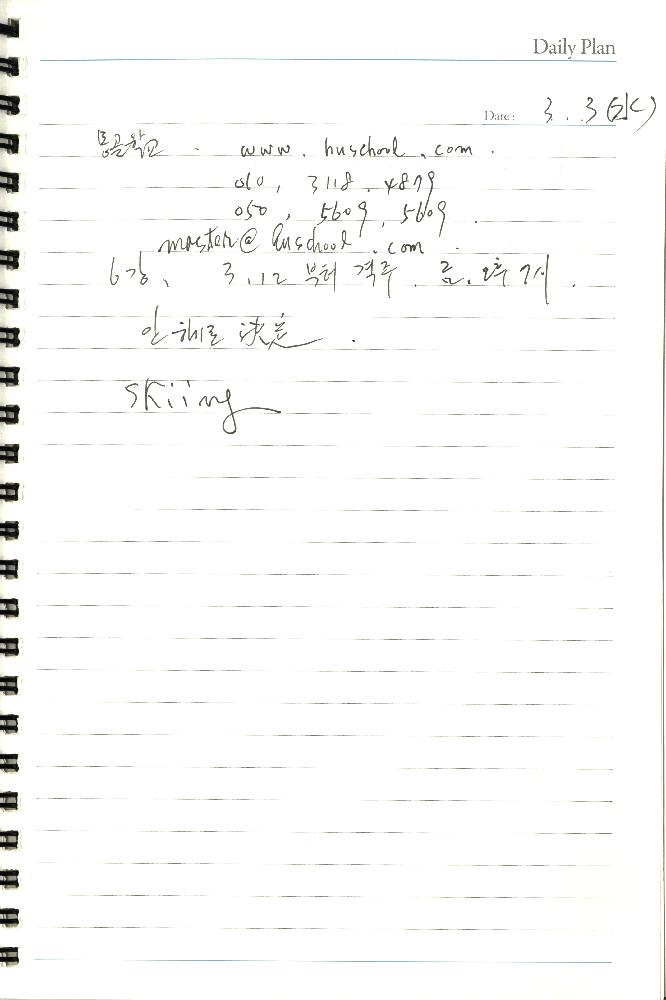 Daily Plan
Date: 3. 3 (水)
몽골학교 . www. huschool. com .
010, 3118. 4879
050, 5609. 5609 .
master@huschool.com .
6강, 3.12 부터 격주. 금. 오후 7시.
안 해로 決定 .
skiing